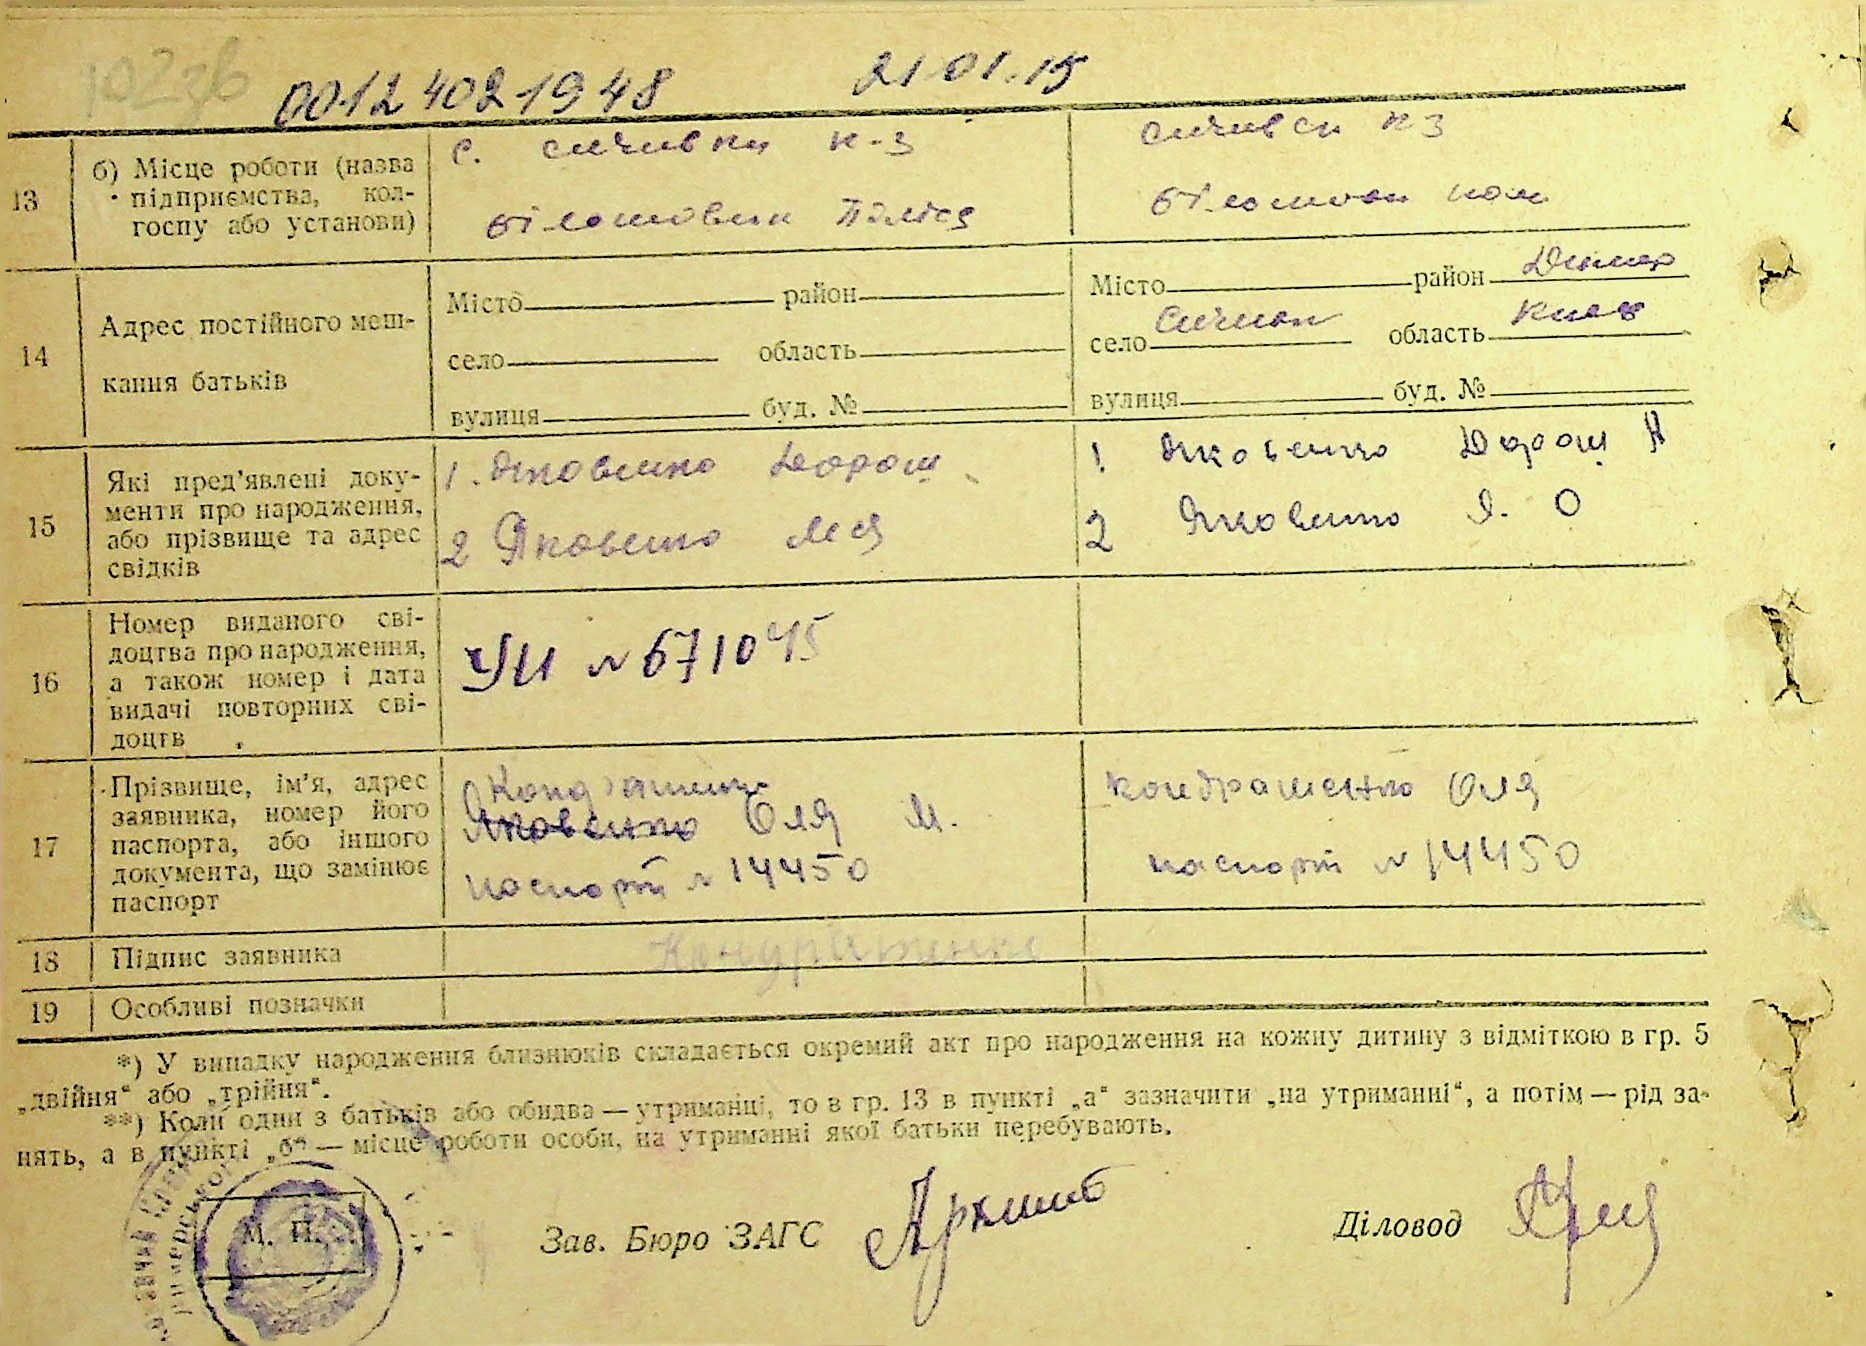 00124021948 21.01.15
13 б) Місце роботи (назва підприємства, колгоспу або установи)
с. сичивки к-з
сичивси к з
14 Адрес постійного мешкання батьків
Місто район
село область
вулиця буд. №
Місто район Димер
село область Киев
вулиця буд. №
15 Які пред'явлені документи про народження, або прізвище та адрес свідків
1. Яковенко Дорош
2 Яковенко
1 Яковенко Дорош Я
2 Яковенко Я. О
16 Номер виданого свідоцтва про народження, а також номер і дата видачі повторних свідоцтв
УИ № 671045
17 Прізвище, ім'я, адрес заявника, номер його паспорта, або іншого документа, що замінює паспорт
Яковенко Оля М.
паспорт № 14450
кондрашенко Оля
паспорт № 14450
18 Підпис заявника
19 Особливі позначки
*) У випадку народження близнюків складається окремий акт про народження на кожну дитину з відміткою в гр. 5
„двійня“ або „трійня“.
**) Коли один з батьків або обидва — утриманці, то в гр. 13 в пункті „а“ зазначити „на утриманні“, а потім — рід за-
нять, а в пункті „б“ — місце роботи особи, на утриманні якої батьки перебувають.
М. П.
Зав. Бюро ЗАГС
Діловод